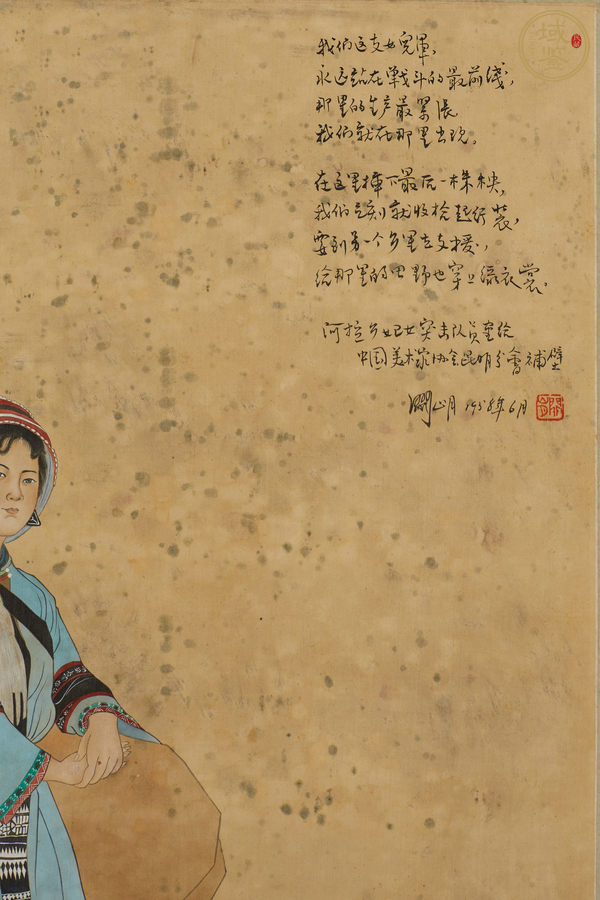 我们这支女兒軍,
永远站在戰斗的最前线,
那里的生产最緊張
我们就在那里出现。
在这里揷下最后一株秧,
我们立刻就收拾起行装,
要到另一个乡里去支援,
给那里的田野也穿上绿衣裳。
阿拉乡 女突击队员
中国美术家协会昆明分會補壁
月 1958年6月
域鉴